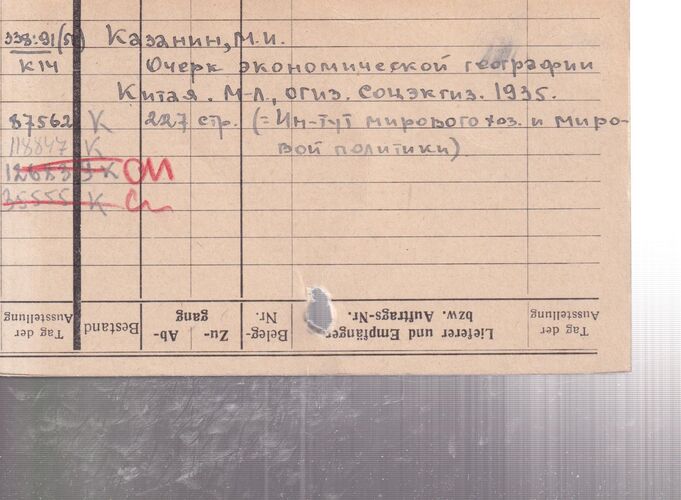 338:91(5 Казанин, М.И.
К14 Очерк экономической географии
Китая. М-Л, огиз. соцэкгиз. 1935.
87562 К 227 стр. (= Ин-тут мирового хоз. и миро-
118847 К вой политики)
К СМ
35555 К
Tag der Ausstellung
Bestand
Zu- Ab-
gang
Beleg-
Nr.
Lieferer und Empfänger
bzw. Auftrags-Nr.
Tag der
Ausstellung